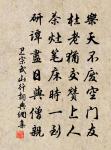 樂天不廢空門友
杜老猶交贊上人
茶灶筆床時一到
研譚盡日與僧親
卫宗武山行詞典網集